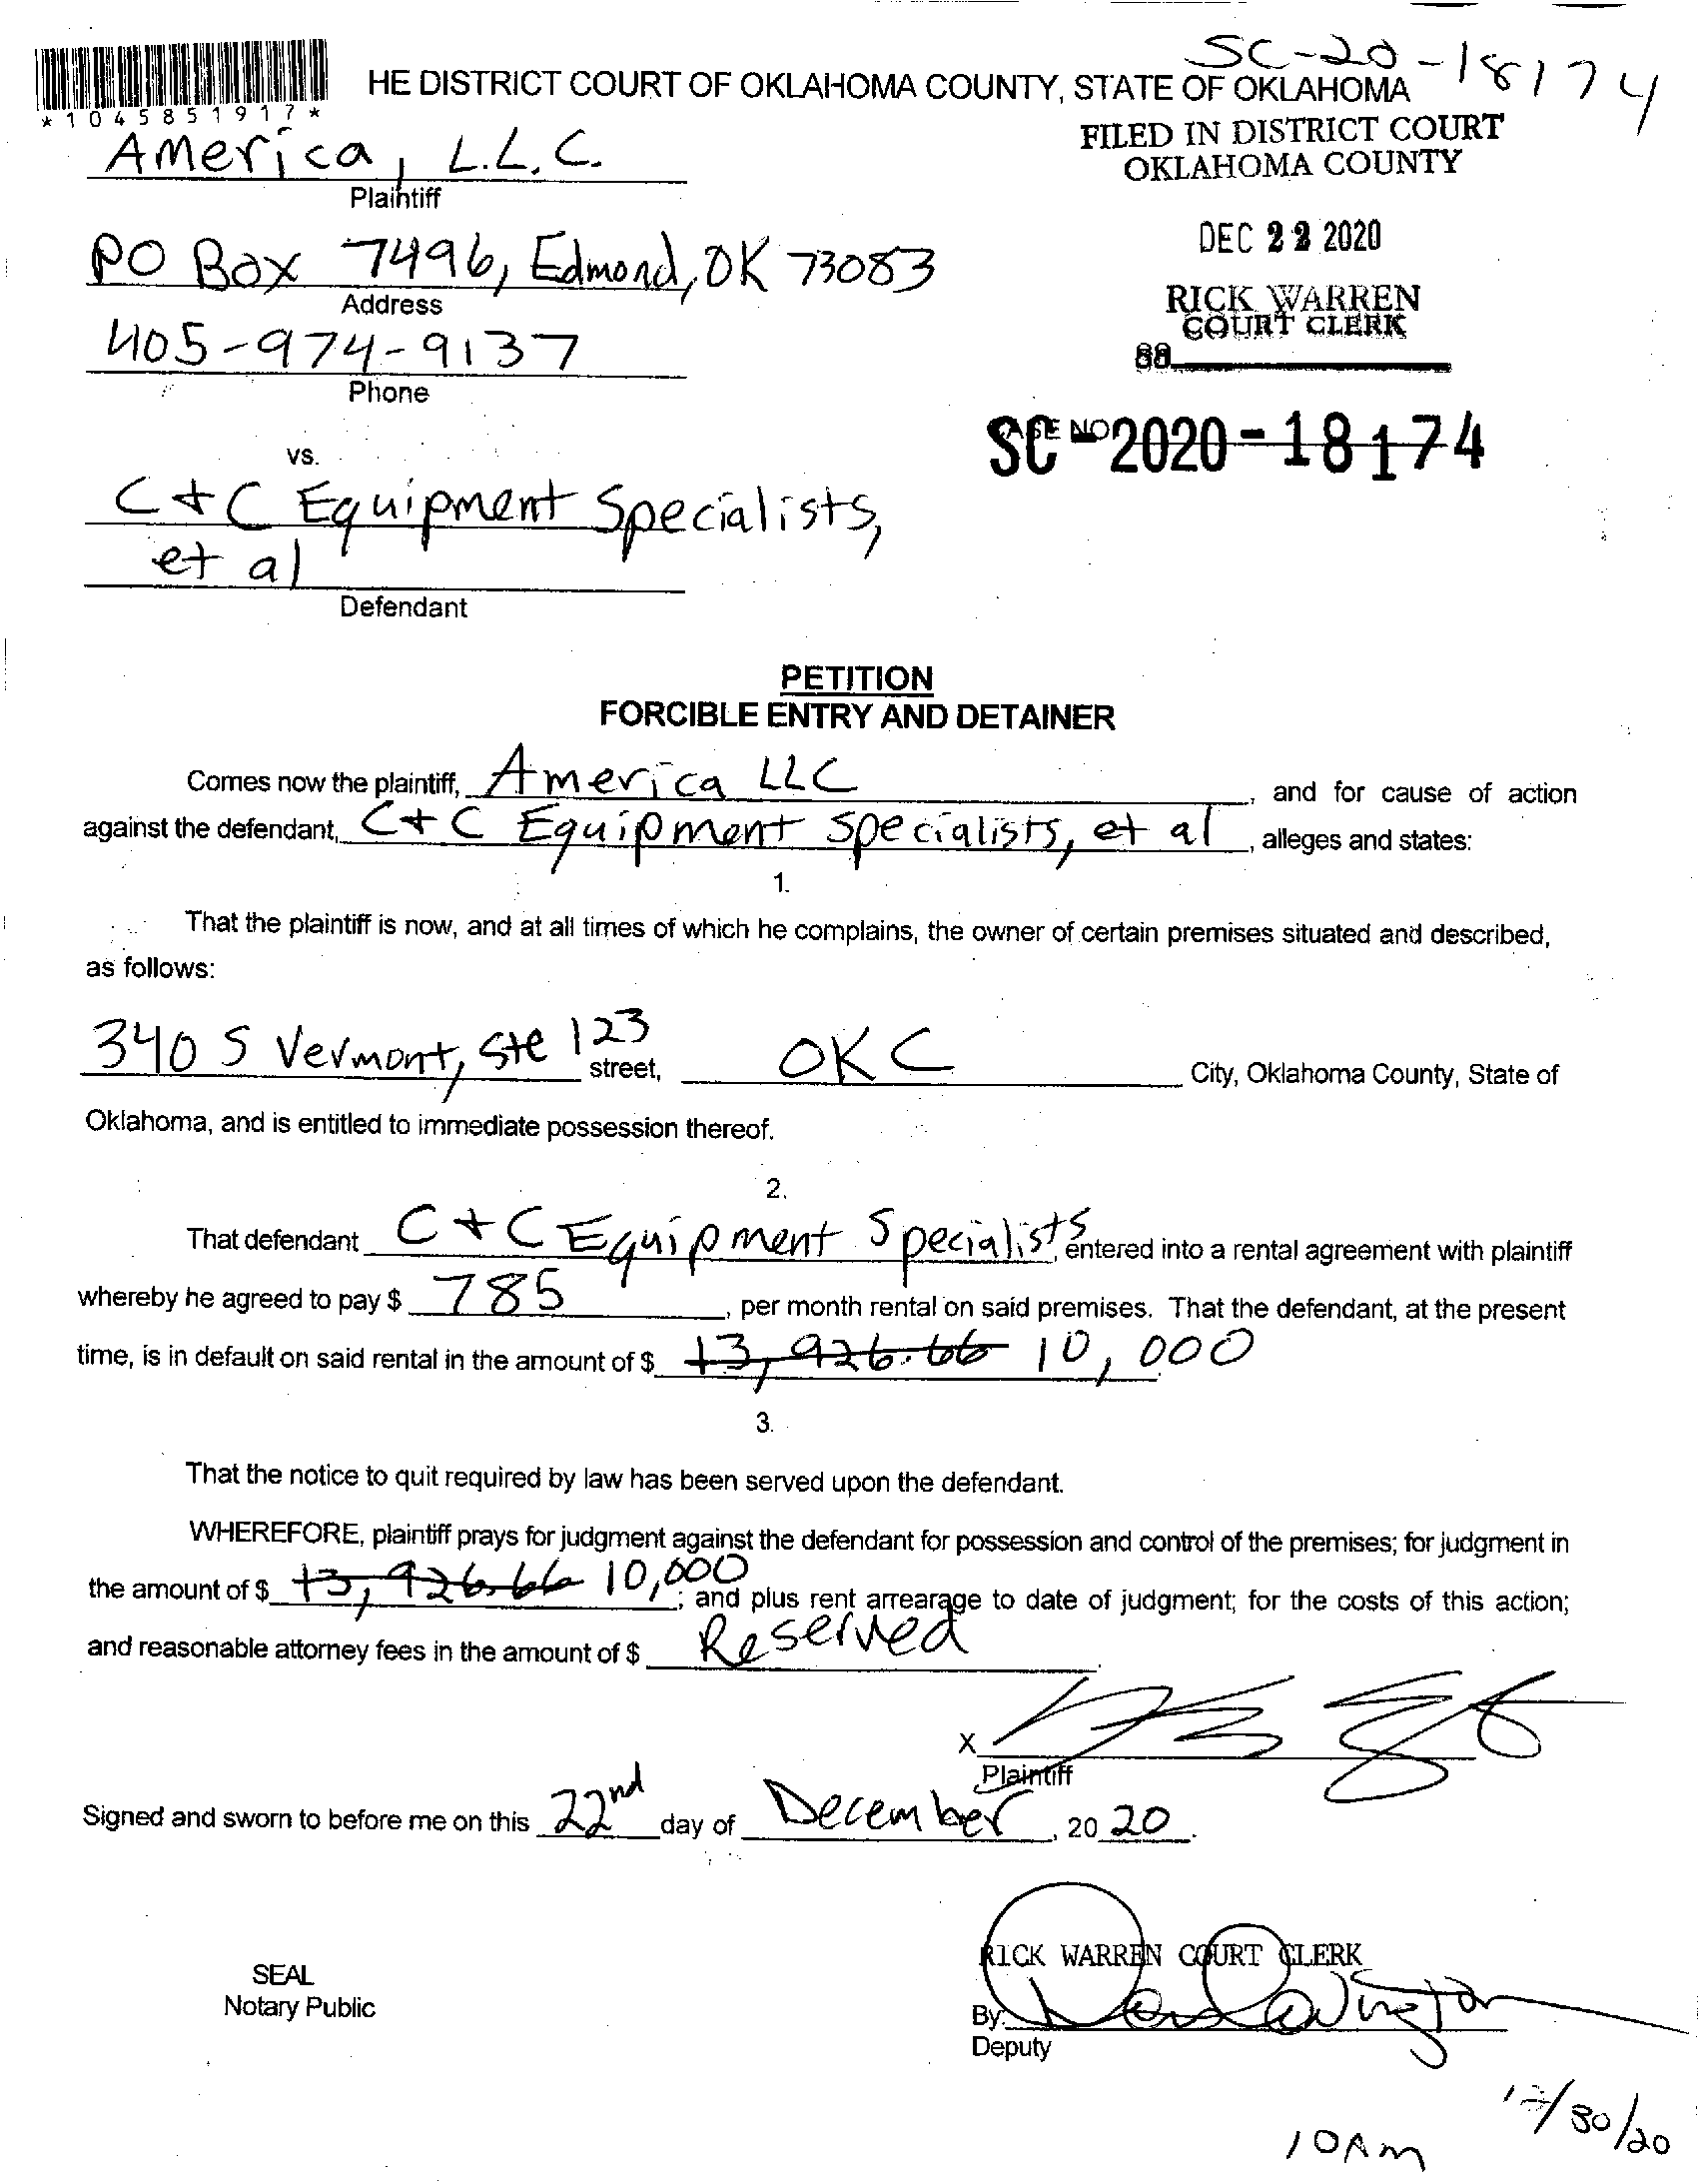 SC-20-18174
HE DISTRICT COURT OF OKLAHOMA COUNTY, STATE OF OKLAHOMA
*1045851917*
FILED IN DISTRICT COURT
OKLAHOMA COUNTY
America, L.L.C.
Plaintiff
DEC 22 2020
PO Box 7496, Edmond, OK 73083
Address
RICK WARREN
COURT CLERK
405-974-9137
88
Phone
CASE NO
SC-2020-18174
vs.
C + C Equipment Specialists,
et al
Defendant
PETITION
FORCIBLE ENTRY AND DETAINER
Comes now the plaintiff, America LLC, and for cause of action
against the defendant, C + C Equipment Specialists, et al, alleges and states:
1.
That the plaintiff is now, and at all times of which he complains, the owner of certain premises situated and described,
as follows:
340 S Vermont, Ste 123 street, OKC City, Oklahoma County, State of
Oklahoma, and is entitled to immediate possession thereof.
2.
That defendant C + C Equipment Specialists, entered into a rental agreement with plaintiff
whereby he agreed to pay $ 785, per month rental on said premises. That the defendant, at the present
time, is in default on said rental in the amount of $ 13,926.66 10,000.
3.
That the notice to quit required by law has been served upon the defendant.
WHEREFORE, plaintiff prays for judgment against the defendant for possession and control of the premises; for judgment in
the amount of $ 13,926.66 10,000; and plus rent arrearage to date of judgment; for the costs of this action;
and reasonable attorney fees in the amount of $ Reserved.
X
Plaintiff
Signed and sworn to before me on this 22nd day of December, 2020.
RICK WARREN COURT CLERK
SEAL
Notary Public
By:
Deputy
12/30/20
10AM